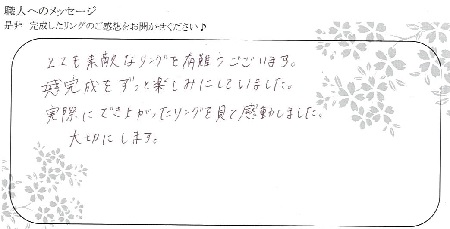 職人へのメッセージ
是非 完成したリングのご感想をお聞かせください♪
とても素敵なリングを有難うございます。
完成をずっと楽しみにしていました。
実際にできあがったリングを見て感動しました。
大切にします。